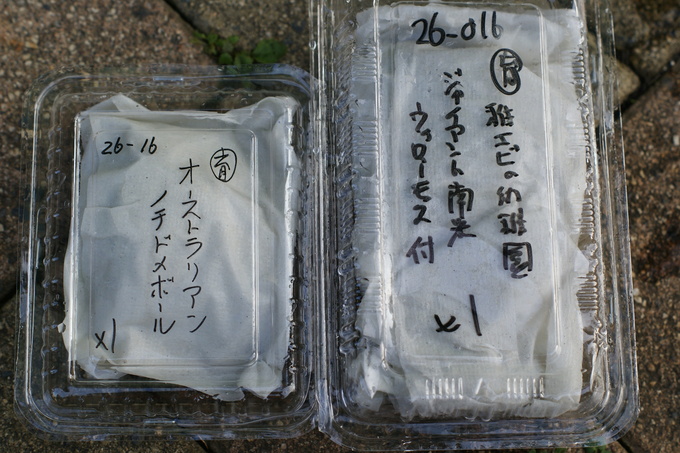 26-16
青
オーストラリアン
ノチドメボール
x1
26-016
青
稚エビの幼稚園
ジャイアント南米
ウィローモス付
x1